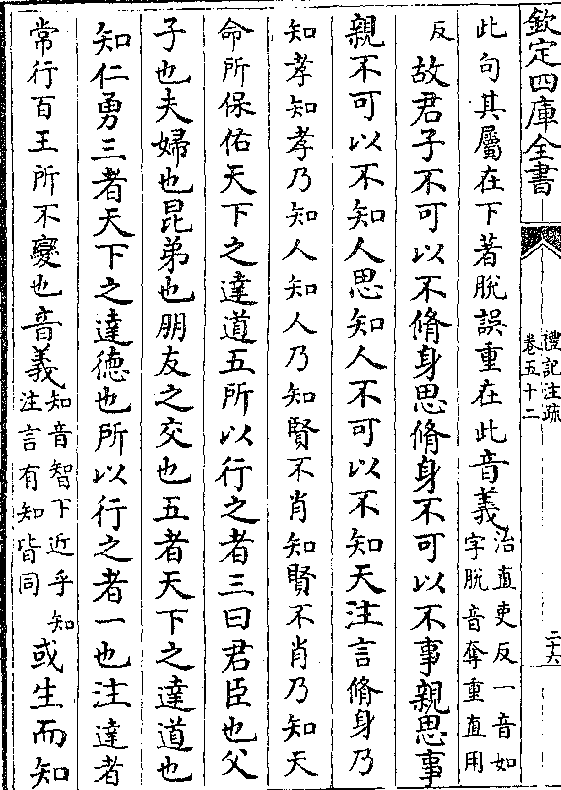 欽定四庫全書
禮記注疏
卷五十二
二十六
此句其屬在下著脫誤重在此音義治直吏反一音如字脫音奪重直用
反故君子不可以不脩身思脩身不可以不事親思事
親不可以不知人思知人不可以不知天注言脩身乃
知孝知孝乃知人知人乃知賢不肖知賢不肖乃知天
命所保佑天下之達道五所以行之者三曰君臣也父
子也夫婦也昆弟也朋友之交也五者天下之達道也
知仁勇三者天下之達德也所以行之者一也注達者
常行百王所不變也音義知音智下近乎知注言有知皆同或生而知